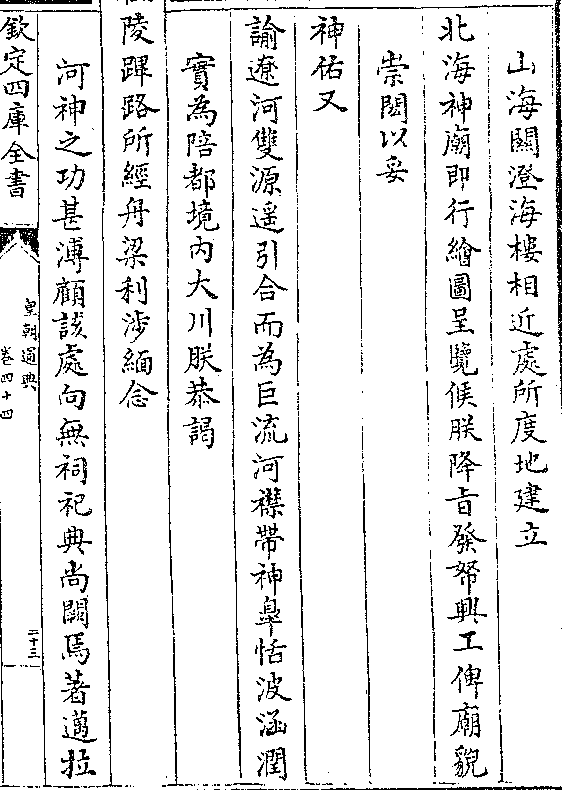 山海關澄海樓相近處所度地建立
北海神廟即行繪圖呈覽候朕降旨發帑興工俾廟貌
崇閎以妥
神佑又
諭遼河雙源遥引合而為巨流河襟帶神臯恬波涵潤
實為陪都境内大川朕恭謁
陵蹕路所經舟梁利涉緬念
河神之功甚溥顧該處向無祠祀典尚闕焉著邁拉
欽定四庫全書
皇朝通典
卷四十四
二十三